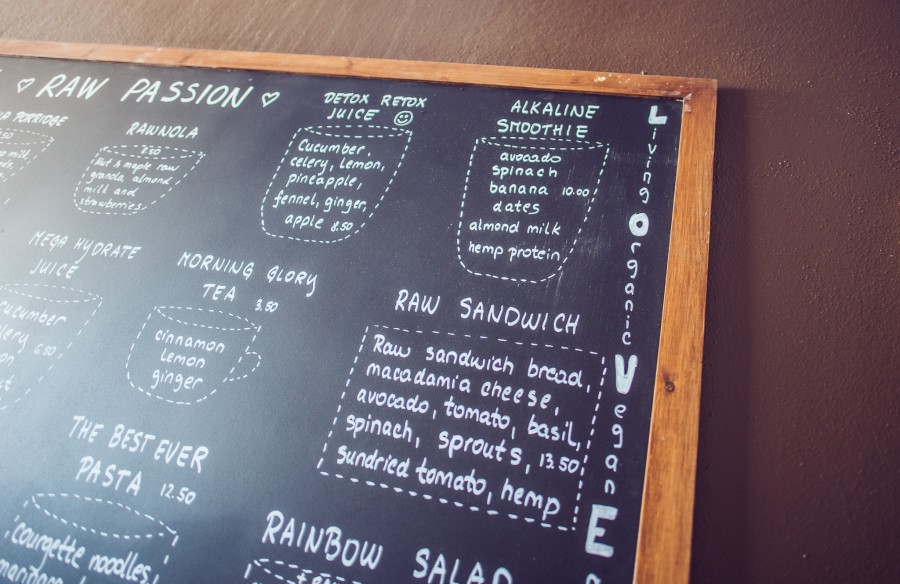 ♡ RAW PASSION ♡
PORRIDGE
RAWNOLA
Nut & maple raw
granola almond
milk and
strawberries
DETOX RETOX
JUICE ☺
Cucumber,
celery, lemon,
pineapple,
fennel, ginger
apple 8.50
ALKALINE
SMOOTHIE
avocado
spinach
banana 10.00
dates
almond milk
hemp protein
MEGA HYDRATE
JUICE
cucumber
6.50
MORNING GLORY
TEA 3.50
cinnamon
lemon
ginger
RAW SANDWICH
Raw sandwich bread,
macadamia cheese,
avocado, tomato, basil,
spinach, sprouts, 13.50
sundried tomato, hemp
THE BEST EVER
PASTA 12.50
courgette noodles,
RAINBOW SALAD
Living
Organic
Vegan
E